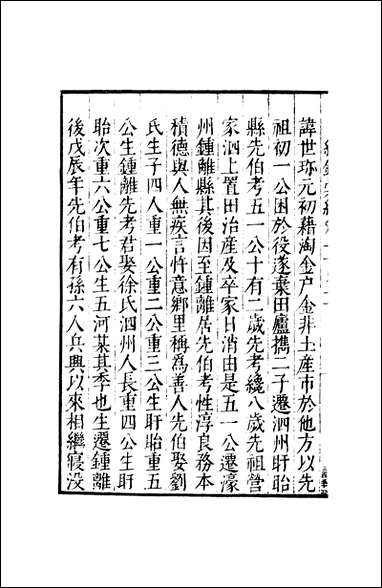 諱世珍元初藉淘金户金非土産市於他方以先
祖初一公困於役遂棄田廬攜二子遷泗州盱眙
縣先伯考五一公十有二歲先考纔八歲先祖營
家泗上置田治産及卒家日消由是五一公遷濠
州鍾離縣其後因至鍾離居先伯考性淳良務本
積德與人無疾言忤意鄉里稱爲善人先伯娶劉
氏生子四人重一公重二公重三公生盱眙重五
公生鍾離先考君娶徐氏泗州人長重四公生盱
眙次重六公重七公生五河某其季也生遷鍾離
後戊辰年先伯考有孫六人兵興以來相繼寢没